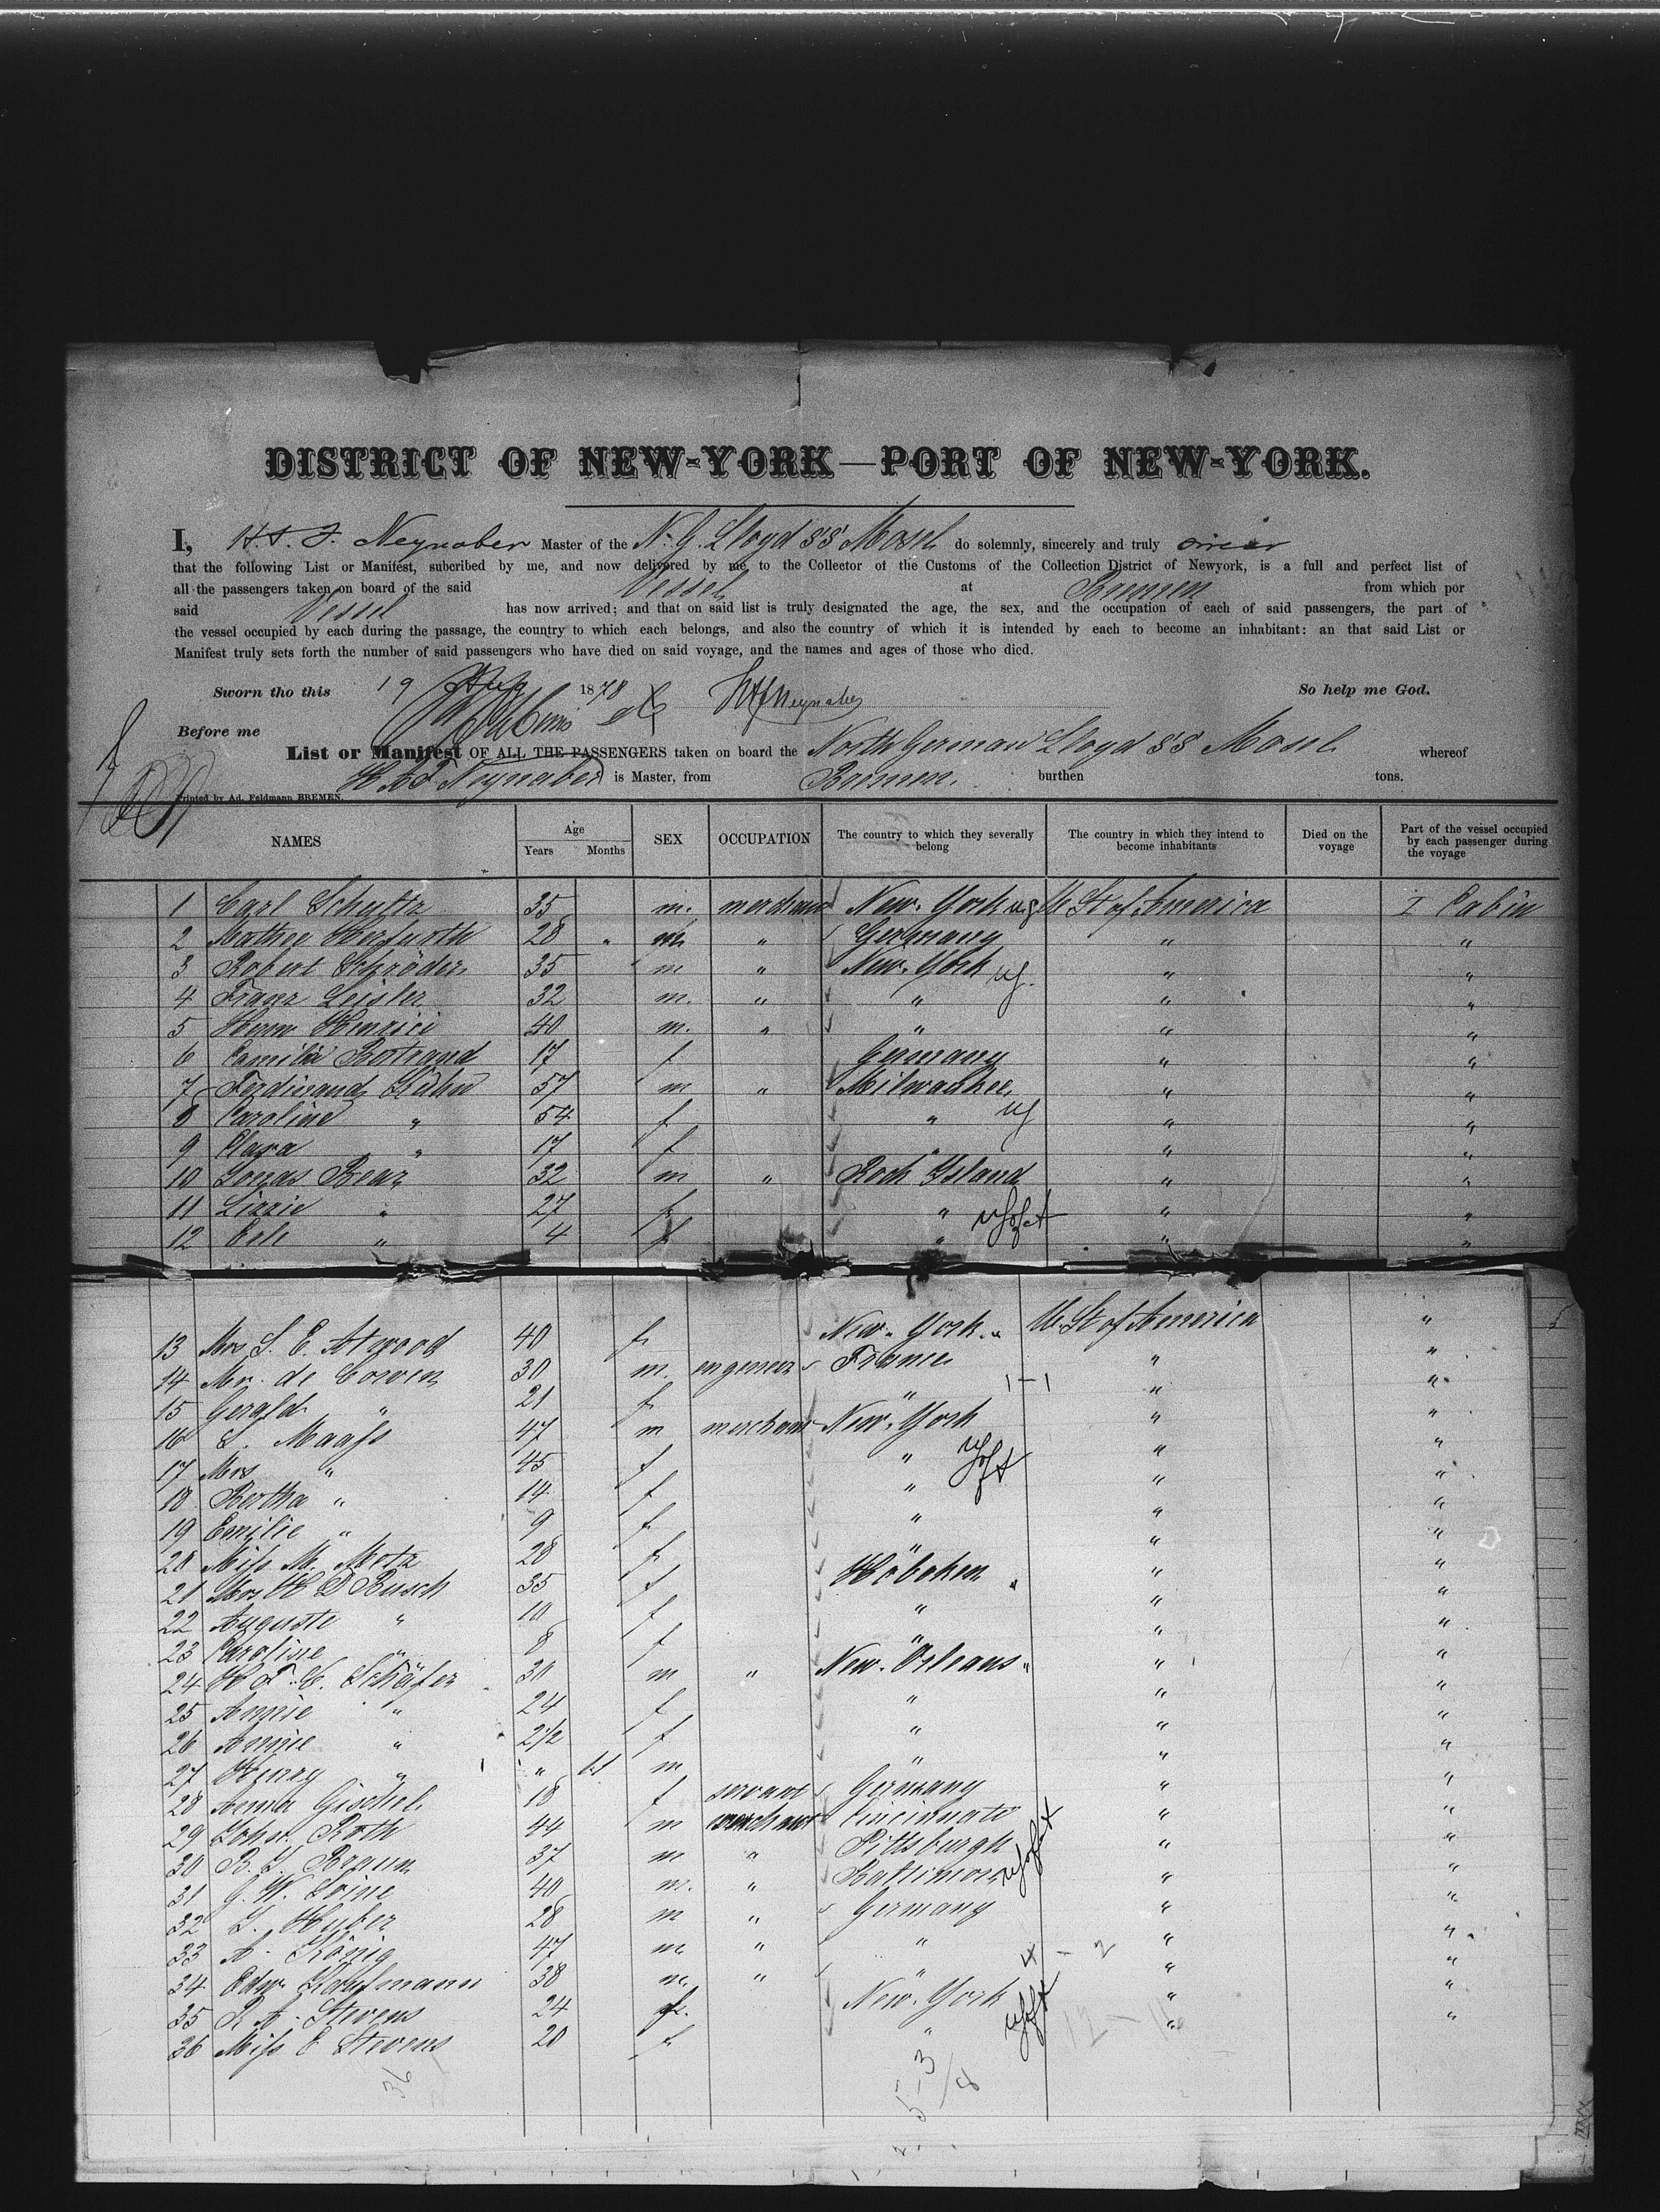 DISTRICT OF NEW-YORK—PORT OF NEW-YORK.
I, H.A.F. Neynaber Master of the N. G. Lloyd SS Mosel do solemnly, sincerely and truly swear
that the following List or Manifest, subcribed by me, and now delivered by me to the Collector of the Customs of the Collection District of Newyork, is a full and perfect list of
all the passengers taken on board of the said Vessel at Bremen from which por
said Vessel has now arrived; and that on said list is truly designated the age, the sex, and the occupation of each of said passengers, the part of
the vessel occupied by each during the passage, the country to which each belongs, and also the country of which it is intended by each to become an inhabitant: an that said List or
Manifest truly sets forth the number of said passengers who have died on said voyage, and the names and ages of those who died.
Sworn tho this 19 Aug 1878 HAFNeynaber So help me God.
Before me
List or Manifest OF ALL THE PASSENGERS taken on board the North German Lloyd SS Mosel whereof
H.A.F. Neynaber is Master, from Bremen. burthen tons.
Printed by Ad. Feldmann BREMEN.
NAMES Age Years Months SEX OCCUPATION The country to which they severally belong The country in which they intend to become inhabitants Died on the voyage Part of the vessel occupied by each passenger during the voyage
1 Carl Schultz 35 m. merchant New-York U St of America I Cabin
2 Mathee Herfurth 28 " m " Germany " "
3 Robert Schröder 35 m " New-York " "
4 Franz Leisler 32 m. " " " "
5 Herm Henrici 40 m. " " " "
6 Camilla Bertrand 17 f Germany " "
7 Ferdinand Kuhn 57 m " Milwaukee " "
8 Caroline " 54 f " " "
9 Clara " 17 f " " "
10 Jonas Bear 32 m " Rock Island " "
11 Lizzie " 27 f " " "
12 " 4 f " " "
13 Mrs S. E. Atwood 40 f New-York " U. St of America "
14 Mr. de 30 m. engineer France " "
15 Gerald " 21 f " 1-1 " "
16 S. Maass 47 m merchant New-York " "
17 Mrs " 45 f " " "
18 Bertha " 14 f " " "
19 Emilie " 9 f " " "
20 Miss M. Motz 28 f " " "
21 Mrs H D Busch 35 f Hoboken " " "
22 Auguste " 10 f " " "
23 Caroline " 8 f " " "
24 H. F. C. Schäfer 30 m " New-Orleans " " "
25 Annie " 24 f " " "
26 Annie " 2 1/2 f " " "
27 Henry " " 11 m " " "
28 Anna Gischel 18 f servant Germany " "
29 John Roth 44 m merchant Cincinnati " "
30 B. L. Braun 37 m " Pittsburgh " "
31 G. W. Loine 40 m. " Baltimore " "
32 L. Huber 28 m " Germany " "
33 A. König 47 m " " " "
34 Edw. Kaufmann 38 m. " " 4-2 " "
35 R A. Stevens 24 f. New-York " "
36 Miss E Stevens 20 f " " "
36 5-3/8 12-